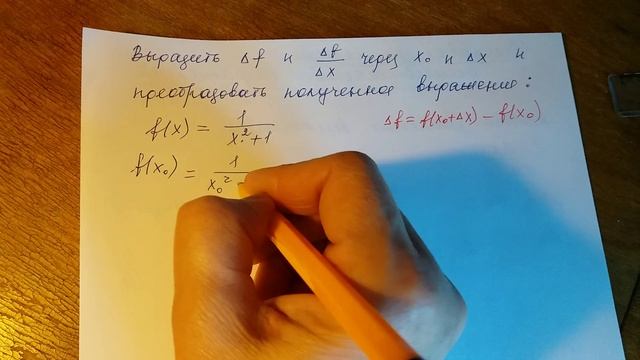 Выразить Δf и Δf/Δx через x₀ и Δx и
преобразовать полученное выражение:
f(x) = 1/(x²+1)
Δf = f(x₀+Δx) − f(x₀)
f(x₀) = 1/(x₀²